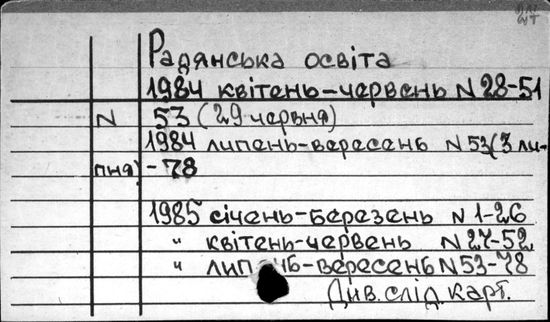 Радянська освіта
1984 квітень-червень N 28-51
N 53 (29 червня)
1984 липень-вересень N 53 (3 ли-
пня) - 78
1985 січень-березень N 1-26
" квітень-червень N 27-52
" липень-вересень N 53-78
Див. слід. карт.